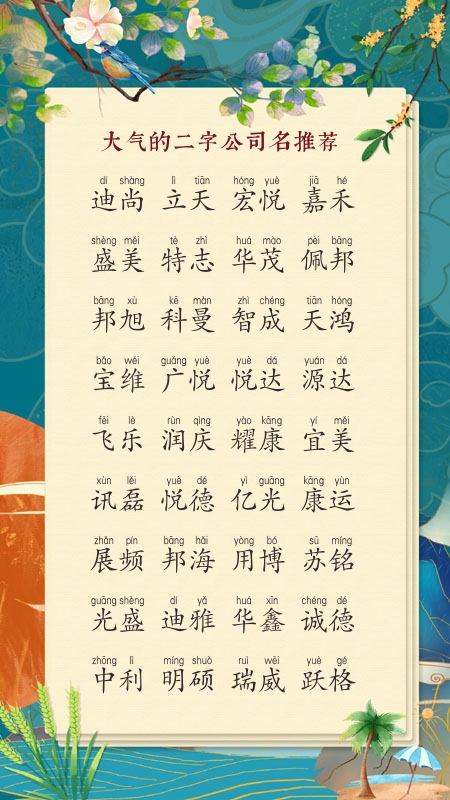 大气的二字公司名推荐
dí shàng lì tiān hóng yuè jiā hé
迪尚 立天 宏悦 嘉禾
shèng měi tè zhì huá mào pèi bāng
盛美 特志 华茂 佩邦
bāng xù kē màn zhì chéng tiān hóng
邦旭 科曼 智成 天鸿
bǎo wéi guǎng yuè yuè dá yuán dá
宝维 广悦 悦达 源达
fēi lè rùn qìng yào kāng yí měi
飞乐 润庆 耀康 宜美
xùn lěi yuè dé yì guāng kāng yùn
讯磊 悦德 亿光 康运
zhǎn pín bāng hǎi yòng bó sū míng
展频 邦海 用博 苏铭
guāng shèng dí yǎ huá xīn chéng dé
光盛 迪雅 华鑫 诚德
zhōng lì míng shuò ruì wēi yuè gé
中利 明硕 瑞威 跃格